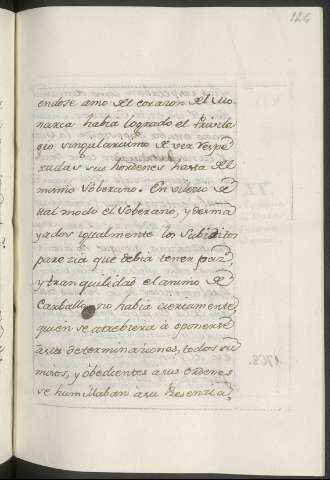 124
endose amo del corazon del Mo
narca habia logrado el Privile
gio singularisimo de ver respe
tadas sus hordenes hasta del
mismo Soberano. En vilezido de
tal modo el Soberano, y desma
yados igualmente los Subditos
parezia que debia tener paz,
y tranquilidad el animo de
Carballo, no habia ciertamente
quien se atrebiera à oponerse
à sus determinaziones, todos su
misos, y obedientes à sus ordenes
se humillaban à su Presenzia,
1768.